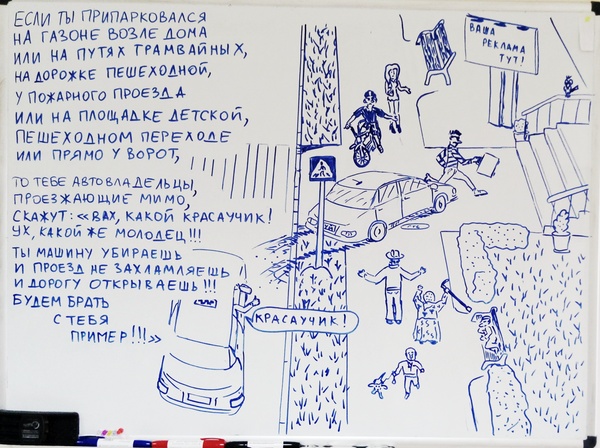 ЕСЛИ ТЫ ПРИПАРКОВАЛСЯ
НА ГАЗОНЕ ВОЗЛЕ ДОМА
ИЛИ НА ПУТЯХ ТРАМВАЙНЫХ,
НА ДОРОЖКЕ ПЕШЕХОДНОЙ,
У ПОЖАРНОГО ПРОЕЗДА
ИЛИ НА ПЛОЩАДКЕ ДЕТСКОЙ,
ПЕШЕХОДНОМ ПЕРЕХОДЕ
ИЛИ ПРЯМО У ВОРОТ,
ТО ТЕБЕ АВТОВЛАДЕЛЬЦЫ,
ПРОЕЗЖАЮЩИЕ МИМО,
СКАЖУТ: «ВАХ, КАКОЙ КРАСАУЧИК!
УХ, КАКОЙ ЖЕ МОЛОДЕЦ!!!
ТЫ МАШИНУ УБИРАЕШЬ
И ПРОЕЗД НЕ ЗАХЛАМЛЯЕШЬ
И ДОРОГУ ОТКРЫВАЕШЬ!!!
БУДЕМ БРАТЬ
С ТЕБЯ
ПРИМЕР!!!»
КРАСАУЧИК!
ВАША
РЕКЛАМА
ТУТ!